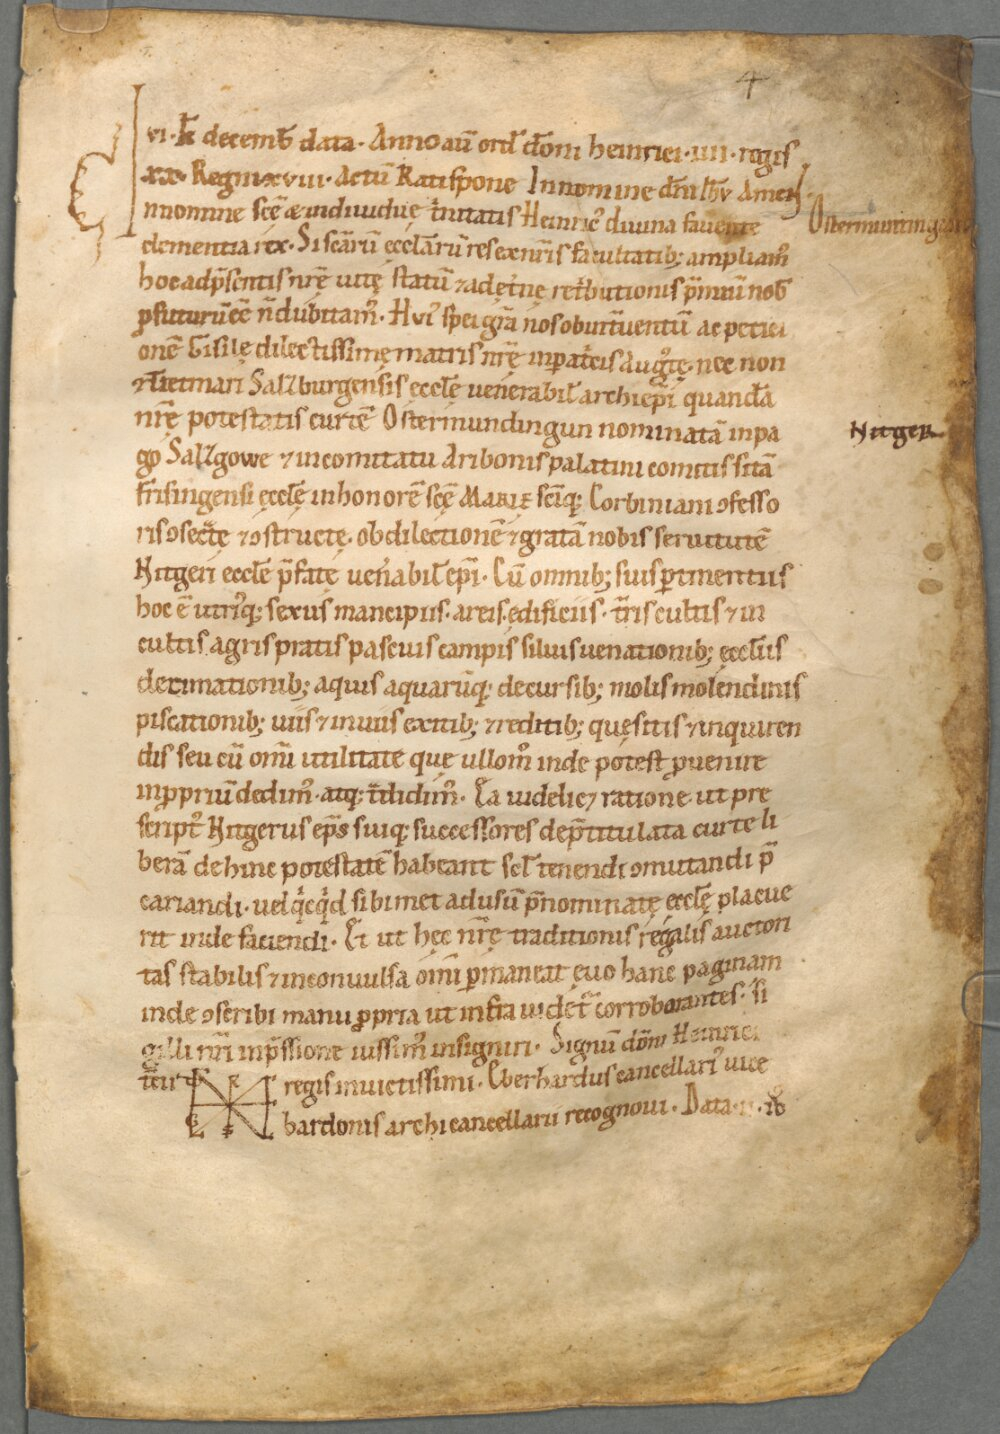 4
vi · k decemb data · Anno aū ord dōm heinrici · iiii · regis
xx · Regni xviii · Actū Ratispone In nomine dnī ihv Amen
Ostermuntinga
In nomine scē & individuę t̄nitatis Heinric᾽ divina favente
clementia rex · Si scārū ecclarū res ex nr̄is facultatib; ampliam᾽
hoc ad p̄sentis nr̄ę vitę statū & ad et̄nę ret̄butionis p̄miū nob
p̱futurū eē n̄ dubitam᾽ · Hui᾽ spei gr̄a nos ob int̄ventū ac petici
onē Gisilę dilectissimę matris nr̄ę inpat̄cis Aug᾽tę · nec non
& Tietmari Salzburgensis eccłe venerabił archiep̄i quandā
nr̄ę potestatis curtē Ostermundingun nominatā in pa
Nitger
go Salzgowe & in comitatu Aribonis palatini comitis sitā
frisingensi eccłę in honorē scę MARIE scīq; Corbiniani ɔfesso
ris ɔsec̄tę & ɔstructę · ob dilectionē & gratā nobis servitutē
Nitgeri eccłe p̄fatę ven̄abił ep̄i · Cū omnib; suis ptinentiis
hoc ē utriq; sexus mancipiis · areis ędificiis · t̄ris cultis & in
cultis agris pratis pascuis campis silvis venationib; ęccłiis
decimationib; aquis aquarūq; decursib; molis molendinis
piscationib; viis & inviis exitib; & reditib; quęsitis & inquiren
dis seu cū om̄i utilitate quę ullom᾽ inde potest p̱venire
in p̱priū dedim᾽ · atq; t̄didim᾽ · Ea videlic& ratione ut pre
script᾽ Nitgerus ep̄s suiq; successores de p̄titulata curte li
berā dehinc potestatē habeant scł tenendi ɔmutandi p̄
cariandi · vel q̇cq̇d sibimet ad usū p̄nominatę eccłę placue
rit inde faciendi · Et ut hęc nr̄ę traditionis regalis auctori
tas stabilis & inconvulsa om̄i pmaneat ęvo hanc paginam
inde ɔscribi manu p̱pria ut infra videt᾽ corroborantes · si
gilli nr̄i inp̄ssione iussim᾽ insigniri · Signū dom̄i Heinrici
regis invictissimi · Eberhardus cancellari᾽ vice
bardonis archicancellarii recognovi · Data · ii ·